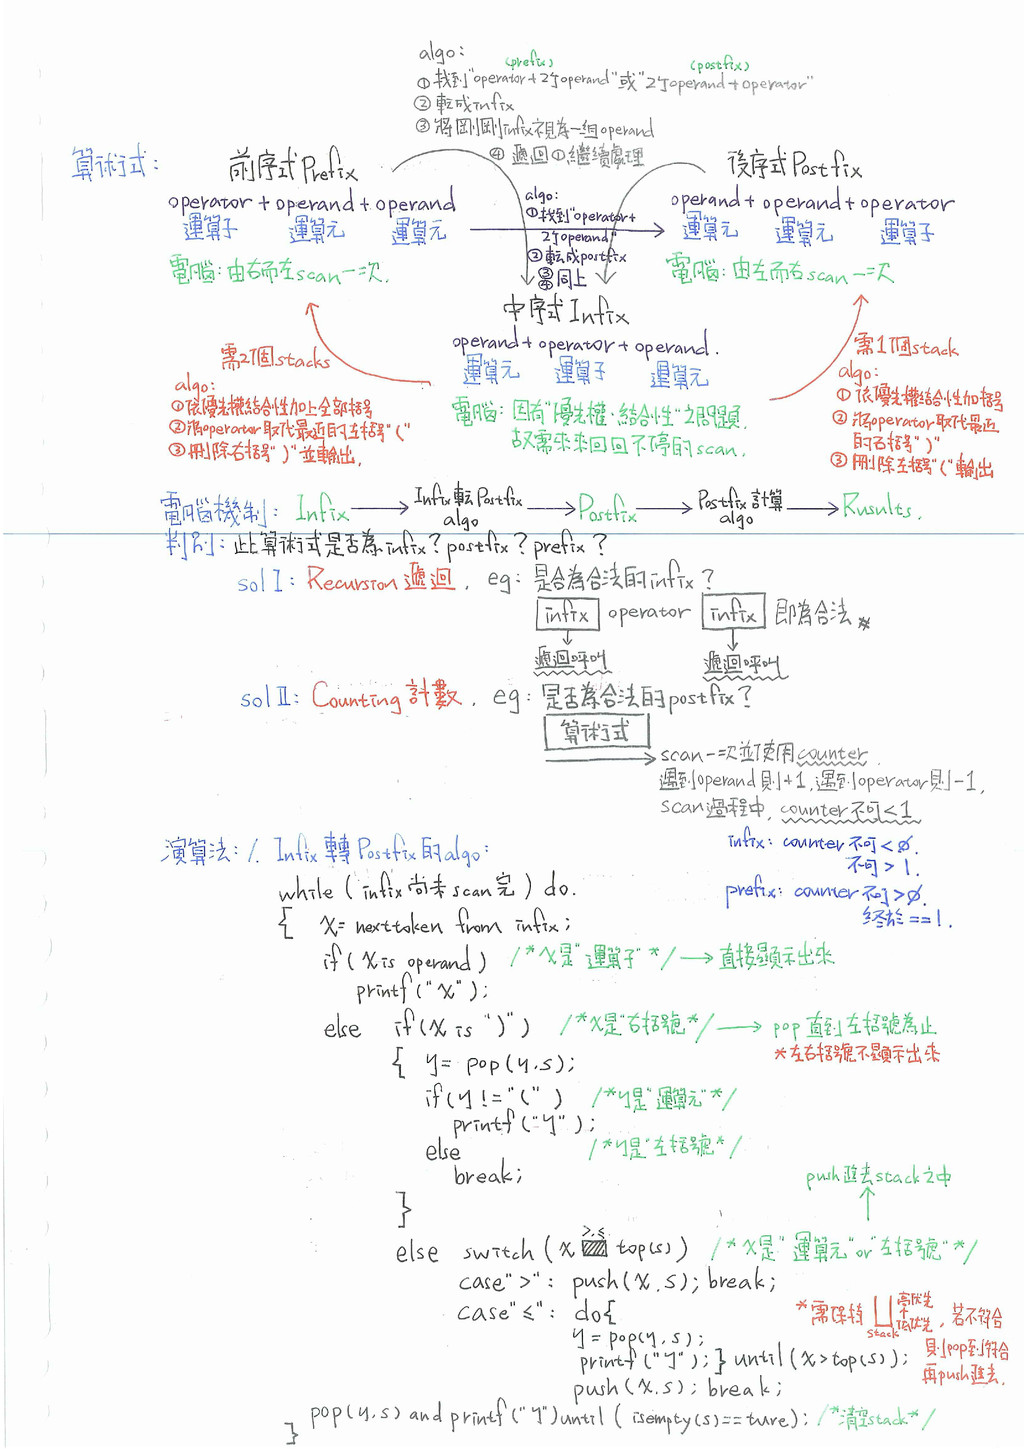 algo:
(prefix) (postfix)
①找到"operator+2个operand"或"2个operand+operator"
②転成infix
③將剛剛infix視為一組operand
④遞迴①繼續處理
算術式:
前序式Prefix
operator + operand + operand
運算子 運算元 運算元
電腦:由右而左scan一次.
algo:
①找到"operator+
2个operand"
②転成postfix
③④同上
後序式Postfix
operand + operand + operator
運算元 運算元 運算子
電腦:由左而右scan一次
中序式Infix
operand + operator + operand.
運算元 運算子 運算元
電腦:因有"優先權、結合性"之問題,
故需來來回回不停的scan.
需2個stacks
algo:
①依優先權結合性加上全部括号
②將operator取代最近的左括号"("
③刪除右括号")"並輸出.
需1個stack
algo:
①依優先權結合性加括号
②將operator取代最近
的右括号")"
③刪除左括号"("輸出
電腦機制: Infix → Infix転Postfix algo → Postfix → Postfix計算 algo → Rusults.
判別:此算術式是否為infix? postfix? prefix?
sol I: Recursion 遞迴. eg: 是否為合法的infix?
infix operator infix 即為合法※
遞迴呼叫 遞迴呼叫
sol II: Counting 計數. eg: 是否為合法的postfix?
算術式
scan一次並使用counter.
遇到operand則+1,遇到operator則-1,
scan過程中, counter不可<1
infix: counter不可<∅.
不可>1.
prefix: counter不可>∅.
終於==1.
演算法: 1. Infix轉Postfix的algo:
while (infix尚未scan完) do.
{ x= nexttoken from infix;
if(x is operand) /*x是"運算子"*/→直接顯示出來
printf("x");
else if(x is ")") /*x是"右括號*/→ pop直到左括號為止
*左右括號不顯示出來
{ y= pop(y.s);
if(y!="(") /*y是"運算元"*/
printf("y");
else /*y是"左括號*/
break;
}
push進去stack之中
>,≤
else switch(x top(s)) /*x是"運算元"or"左括號"*/
case">": push(x.s); break;
case"≤": do{
y=pop(y,s);
printf("y");} until(x>top(s));
push(x.s); break;
*需保持 stack 高優先 低優先, 若不符合
則pop到符合
再push進去.
pop(y,s) and printf("y")until ( isempty(s)==ture); /*清空stack*/
}